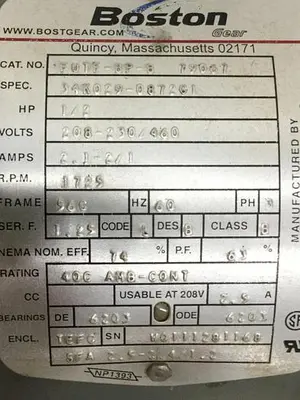 Boston
WWW.BOSTGEAR.COM Gear
Quincy, Massachusetts 02171
CAT. NO.
SPEC.
HP 1/2
VOLTS 208-230/460
AMPS 2.1-2/1
R.P.M. 1725
FRAME 56C HZ 60 PH
SER. F. 1.25 CODE DES B CLASS B
NEMA NOM. EFF. 74 P.F. 61
RATING 40C AMB-CONT
CC USABLE AT 208V A
BEARINGS DE 6203 ODE 6203
ENCL. TEFC SN
SFA
NP1393
MANUFACTURED BY